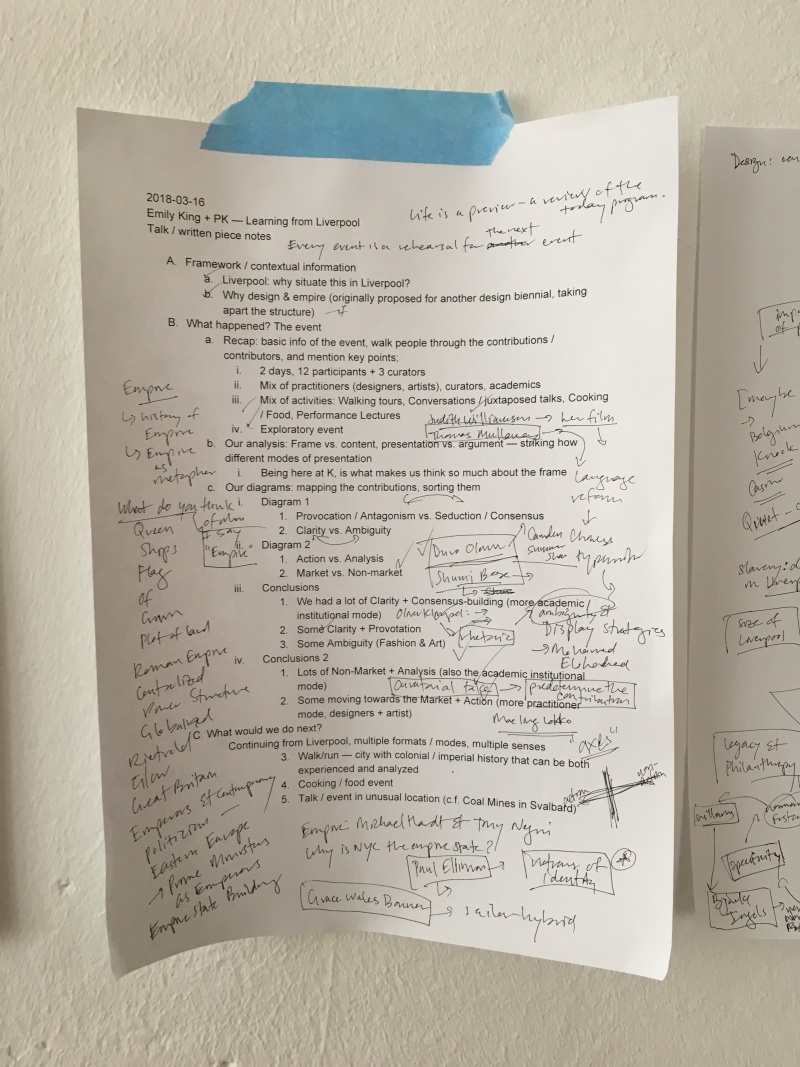 2018-03-16
Emily King + PK — Learning from Liverpool
Talk / written piece notes
Life is a preview – a review of the
today program.
Every event is a rehearsal for the next event
A. Framework / contextual information
a. Liverpool: why situate this in Liverpool?
b. Why design & empire (originally proposed for another design biennial, taking
apart the structure)
B. What happened? The event
a. Recap: basic info of the event, walk people through the contributions /
contributors, and mention key points;
i. 2 days, 12 participants + 3 curators
ii. Mix of practitioners (designers, artists), curators, academics
iii. Mix of activities: Walking tours, Conversations / juxtaposed talks, Cooking
/ Food, Performance Lectures
iv. Exploratory event
b. Our analysis: Frame vs. content, presentation vs. argument — striking how
different modes of presentation
i. Being here at K, is what makes us think so much about the frame
c. Our diagrams: mapping the contributions, sorting them
i. Diagram 1
1. Provocation / Antagonism vs. Seduction / Consensus
2. Clarity vs. Ambiguity
ii. Diagram 2
1. Action vs. Analysis
2. Market vs. Non-market
iii. Conclusions
1. We had a lot of Clarity + Consensus-building (more academic /
institutional mode)
2. Some Clarity + Provotation
3. Some Ambiguity (Fashion & Art)
iv. Conclusions 2
1. Lots of Non-Market + Analysis (also the academic institutional
mode)
2. Some moving towards the Market + Action (more practitioner
mode, designers + artist)
C. What would we do next?
Continuing from Liverpool, multiple formats / modes, multiple senses
3. Walk/run — city with colonial / imperial history that can be both
experienced and analyzed
4. Cooking / food event
5. Talk / event in unusual location (c.f. Coal Mines in Svalbard)
Empire
history of
Empire
Empire
as
metaphor
What do you think
of when
I say
"Empire"
Queen
Ships
Flag
of
Crown
Plot of land
Roman Empire
Centralized
Power Structure
Globalized
Rietveld
Great Britain
Emperors of Contemporary
Politician
Eastern Europe
Prime Ministers
as Emperors
Empire State Building
Judith Williamson her film
Thomas Mullaney
Language
reform
Chinese
typewriter
Duro Olowu
Camden
Shumi Bose
rhetoric
ambiguity of
Display strategies
Mohamed
Elshahed
curatorial
predetermine the
contribution
Mae-ling Lokko
"axes"
action
non-
action
Empire: Michael Hardt & Tony Negri
Why is NYC the empire state?
Paul Elliman
Grace Wales Bonner
sailor-hybrid
identity
Design:
[maybe
Belgium
Knock
Casino
slavery:
in Liverpool
size of
Liverpool
legacy of
Philanthropy
military
specificity
Bjarke
Ingels